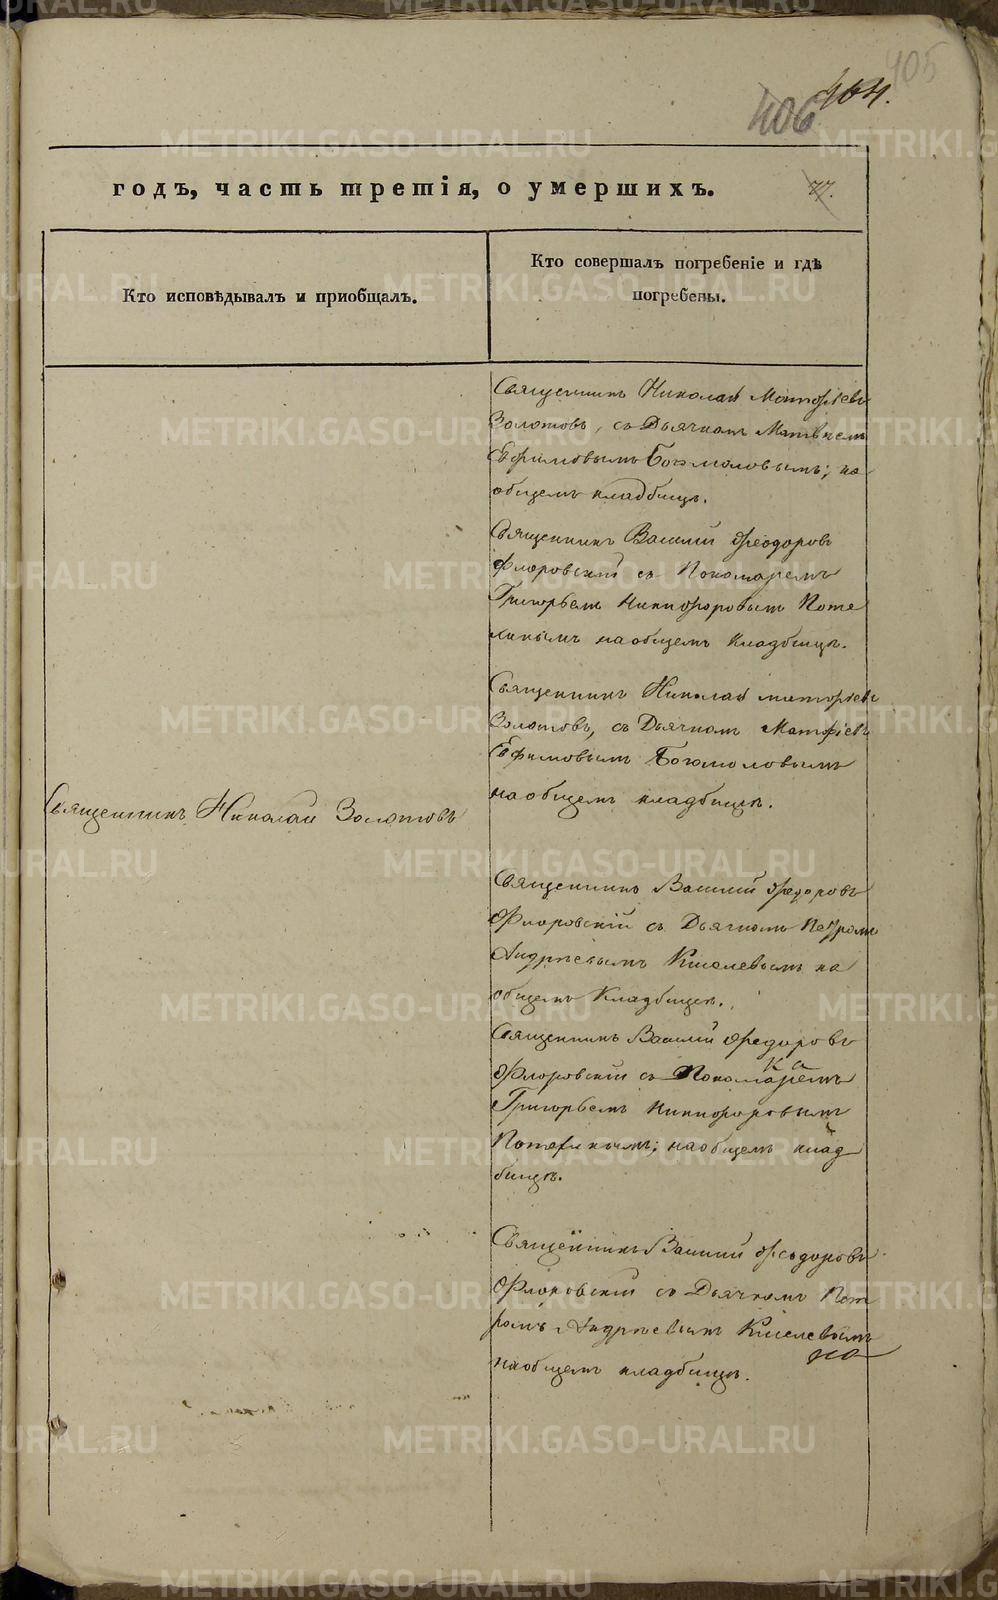 405
406 404.
годъ, часть третія, о умершихъ. 77.
Кто исповѣдывалъ и приобщалъ.
Кто совершалъ погребеніе и гдѣ
погребены.
Священникъ Николай Матфіевъ
Золотовъ, съ Дьячкомъ Матвѣемъ
Ефимовымъ Богомоловымъ; на
общемъ кладбищѣ.
Священникъ Василій Феодоровъ
Флоровскій съ Пономаремъ
Григорьемъ Никифоровымъ Поте
линымъ на общемъ кладбищѣ.
Священникъ Николай Матфіевъ
Золотовъ, съ Дьячкомъ Матфіевъ
Ефимовымъ Богомоловымъ
на общемъ кладбищѣ.
Священникъ Николай Золотовъ
Священникъ Василій Федоровъ
Флоровскій съ Дьячкомъ Петромъ
Андреевымъ Киселевымъ на
общемъ Кладбищѣ.
Священникъ Василій Федоровъ
Флоровскій съ Пономаремъ
Григорьемъ Никифоровымъ
на общемъ клад
бищѣ.
Священникъ Василій Феодоровъ
Флоровскій съ Дьячкомъ Пет
ромъ Андреевымъ Киселевымъ
на
на общемъ кладбищѣ.
METRIKI.GASO-URAL.RU